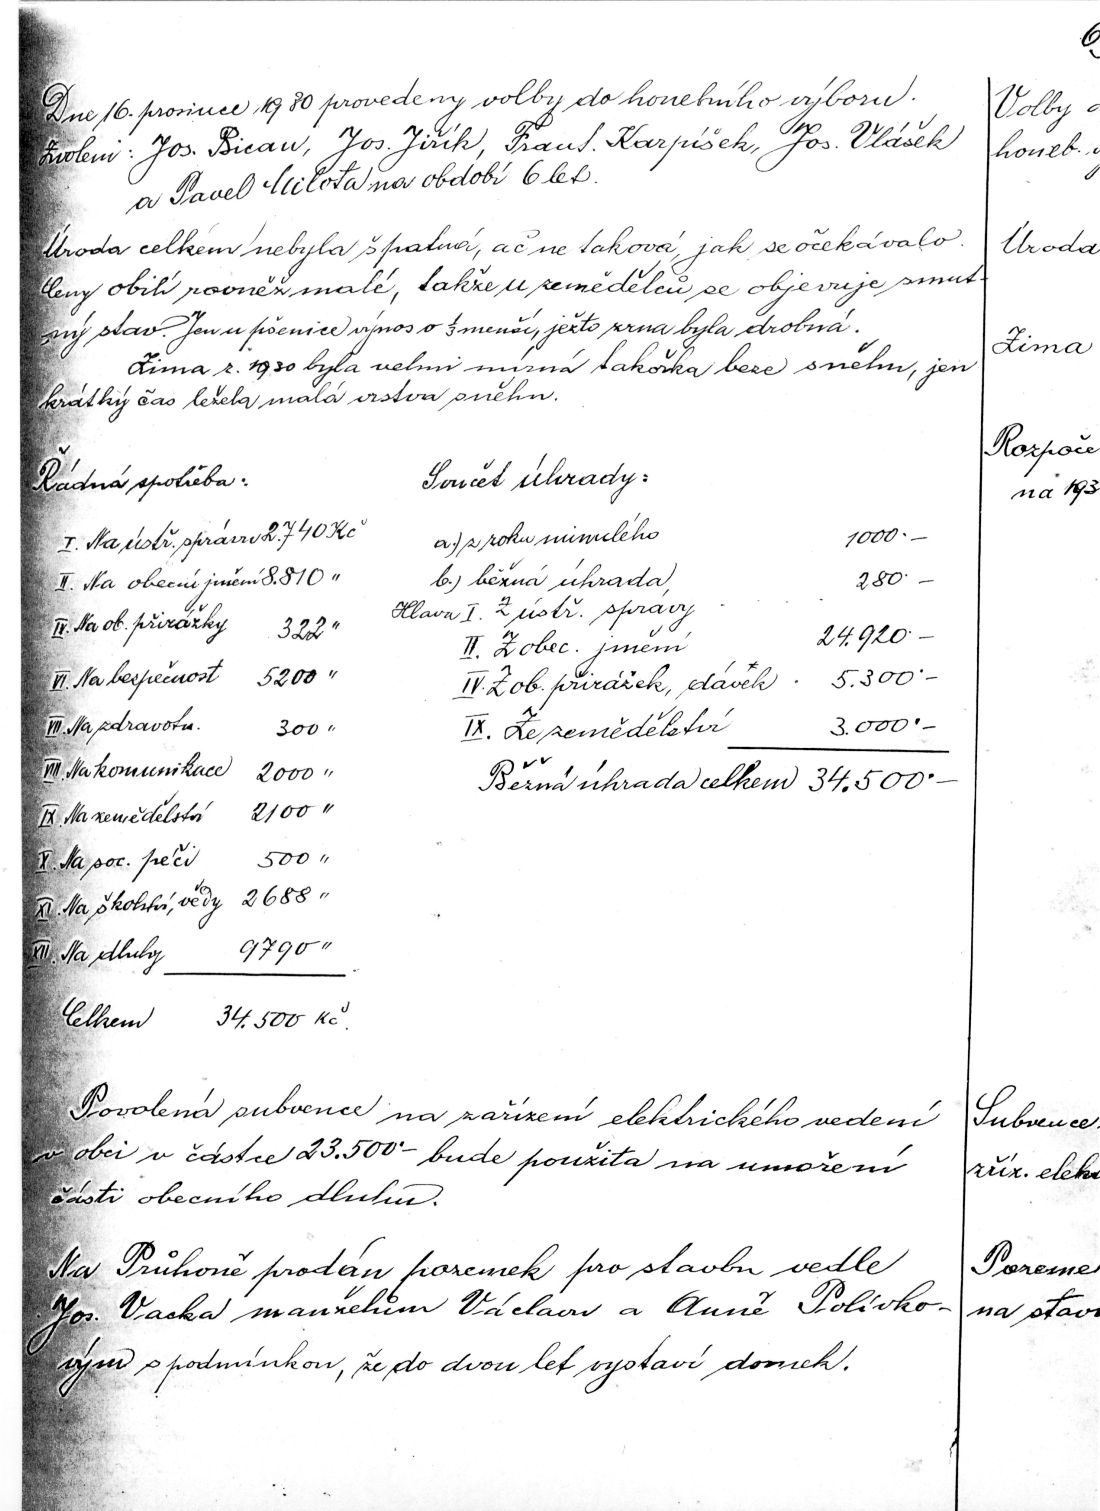 Dne 16. prosince 1930 provedeny volby do honebního výboru.
Zvoleni: Jos. Bican, Jos. Jiřík, Frant. Karpíšek, Jos. Vlášek
a Pavel Milota na období 6 let.
Volby
honeb.
Úroda celkem nebyla špatná, ač ne taková, jak se očekávalo.
Úroda
Ceny obilí rovněž malé, takže u zemědělců se objevuje smut-
ný stav. Jen u pšenice výnos o ⅓ menší, ježto zrna byla drobná.
Zima r. 1930 byla velmi mírná takořka beze sněhu, jen
Zima
krátký čas ležela malá vrstva sněhu.
Rozpoče
na 193
Řádná spotřeba:
I. Na ústř. správu 2.740 Kč
II. Na obecní jmění 8.810 "
IV. Na ob. přirážky 322 "
VI. Na bezpečnost 5200 "
VII. Na zdravotn. 300 "
VIII. Na komunikace 2000 "
IX. Na zemědělství 2100 "
X. Na soc. péči 500 "
XI. Na školství, vědy 2688 "
XII. Na dluhy 9790 "
Celkem 34.500 Kč.
Součet úhrady:
a.) z roku minulého 1000.-
b.) běžná úhrada, 280.-
Hlava I. Z ústř. správy
II. Z obec. jmění 24.920.-
IV. Z ob. přirážek, dávek . 5.300.-
IX. Ze zemědělství 3.000.-
Běžná úhrada celkem 34.500.-
Povolená subvence na zařízení elektrického vedení
v obci v částce 23.500.- bude použita na umoření
části obecního dluhu.
Subvence
zříz. elek
Na Průhoně prodán pozemek pro stavbu vedle
Jos. Vacka manželům Václavu a Anně Polívko-
vým s podmínkou, že do dvou let vystaví domek.
Pozeme
na stav